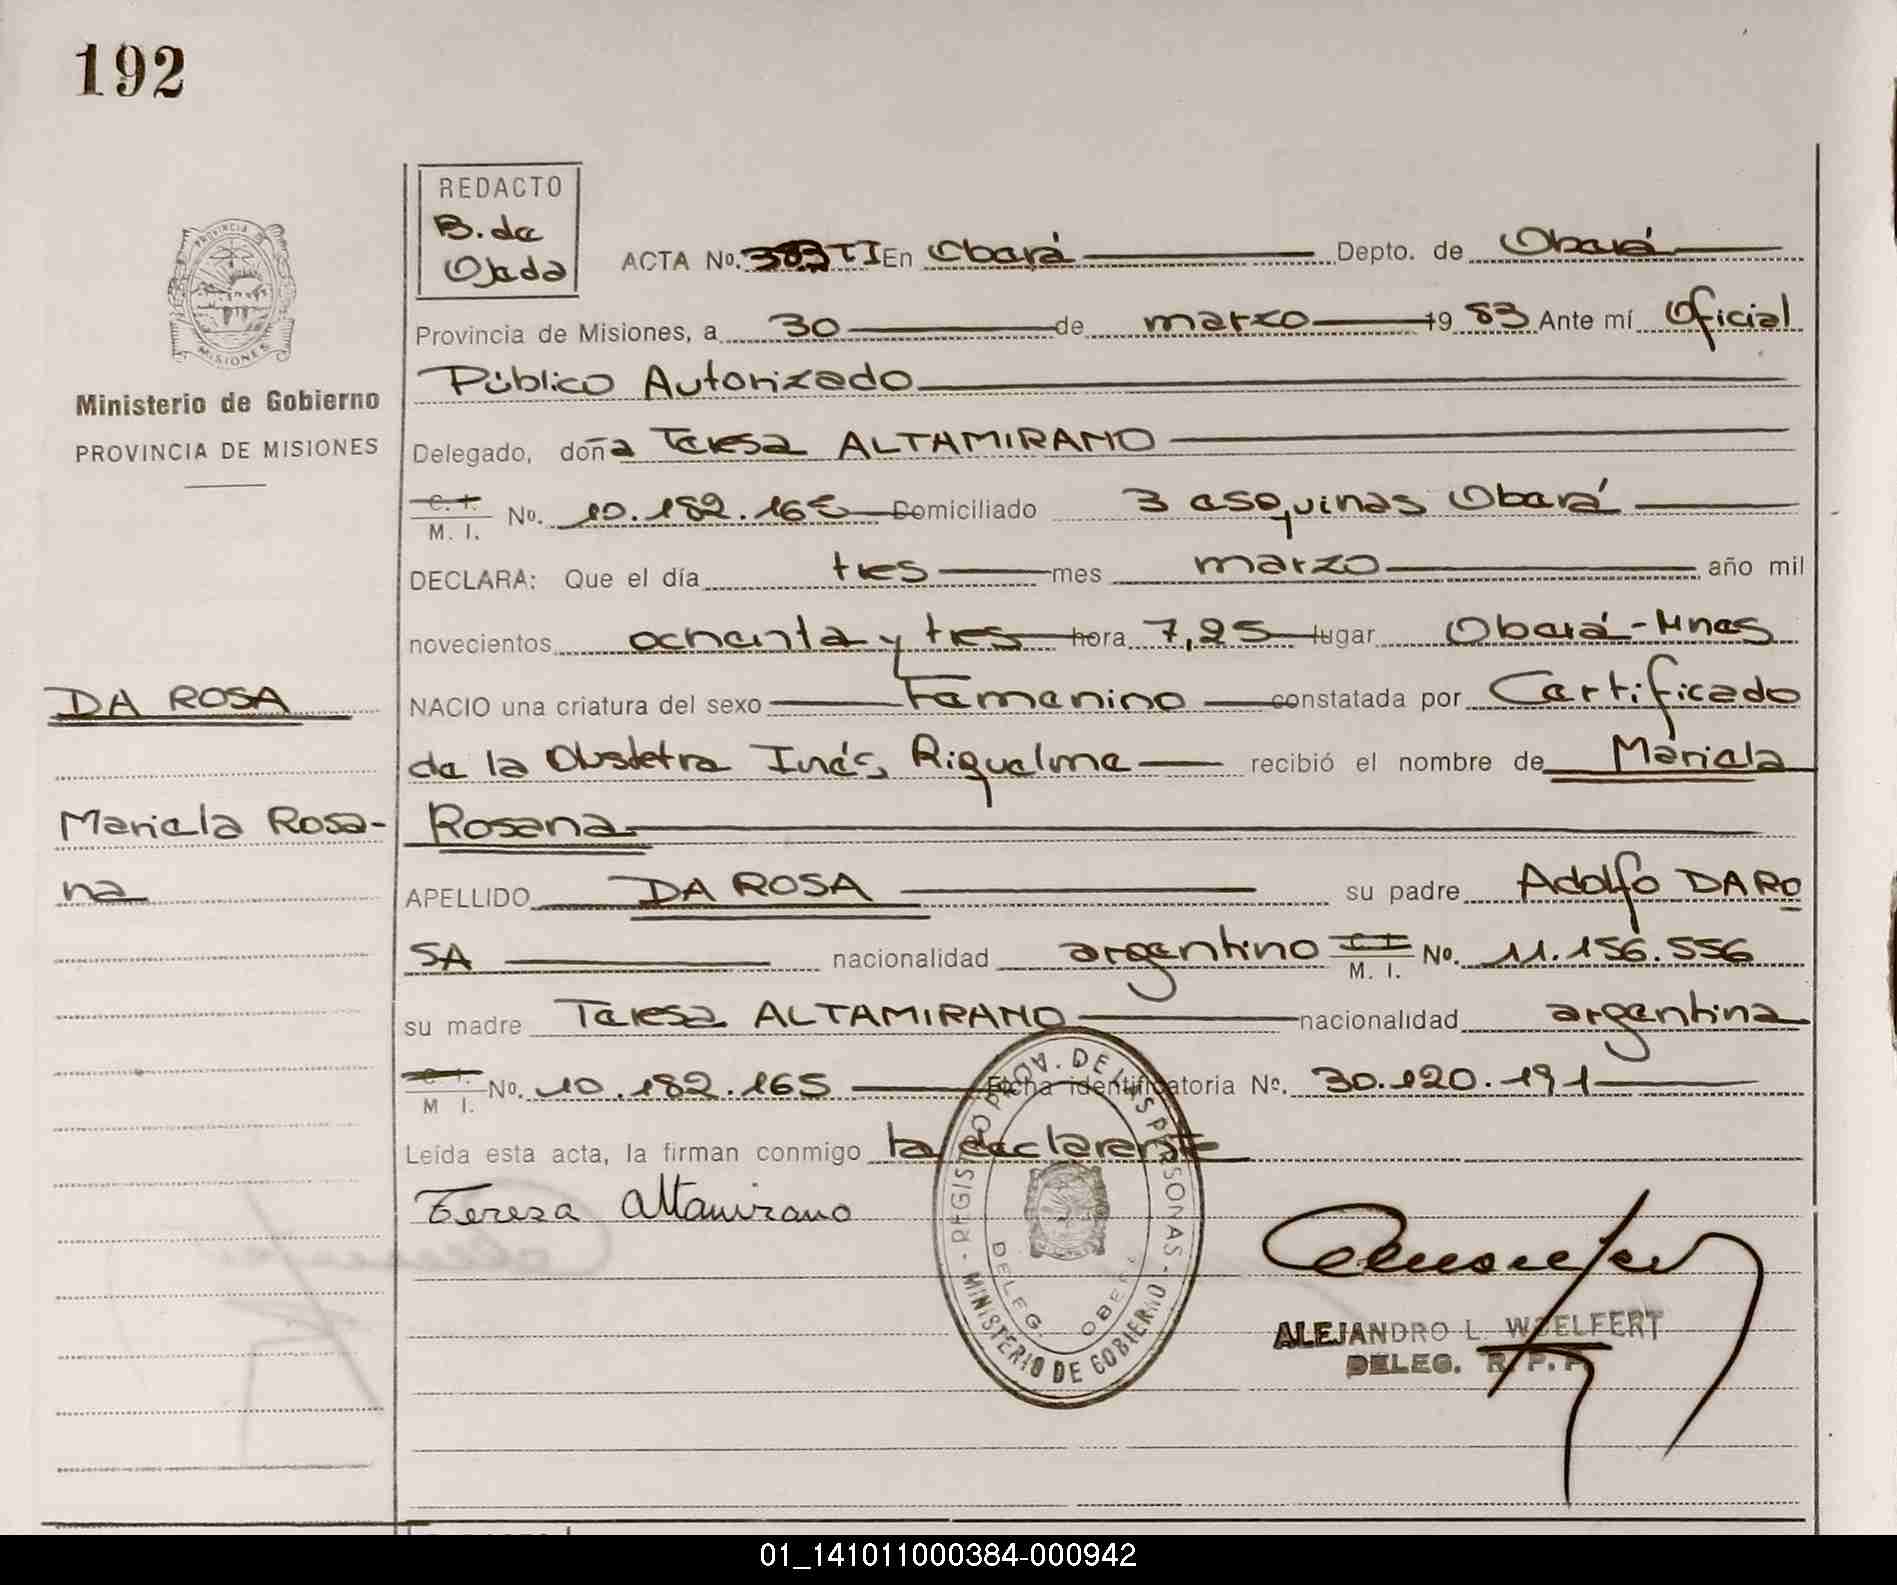 192
REDACTO
B. de
Ojeda
ACTA No. 383 TI En Oberá Depto. de Oberá
Provincia de Misiones, a 30 de marzo 19 83 Ante mí Oficial
Público Autorizado
Ministerio de Gobierno
PROVINCIA DE MISIONES
Delegado, doña Teresa ALTAMIRANO
C. I.
M. I. No. 10.182.165 Domiciliado 3 esquinas Oberá
DECLARA: Que el día tres mes marzo año mil
novecientos ochenta y tres hora 7,25 lugar Oberá-Mnes
DA ROSA
NACIO una criatura del sexo Femenino constatada por Certificado
de la Obstetra Inés Riquelme recibió el nombre de Mariela
Mariela Rosa-
na
Rosana
APELLIDO DA ROSA su padre Adolfo DA RO
SA nacionalidad argentino C I M. I. No. 11.156.556
su madre Teresa ALTAMIRANO nacionalidad argentina
C. I.
M I. No. 10.182.165 Ficha identificatoria No. 30.120.191
Leída esta acta, la firman conmigo la declarante
Teresa Altamirano
REGISTRO PROV. DE LAS PERSONAS
MINISTERIO DE GOBIERNO
DELEG. OBERA
ALEJANDRO L. WOELFERT
DELEG. R. P. P.
PROVINCIA D
MISIONES
01_141011000384-000942